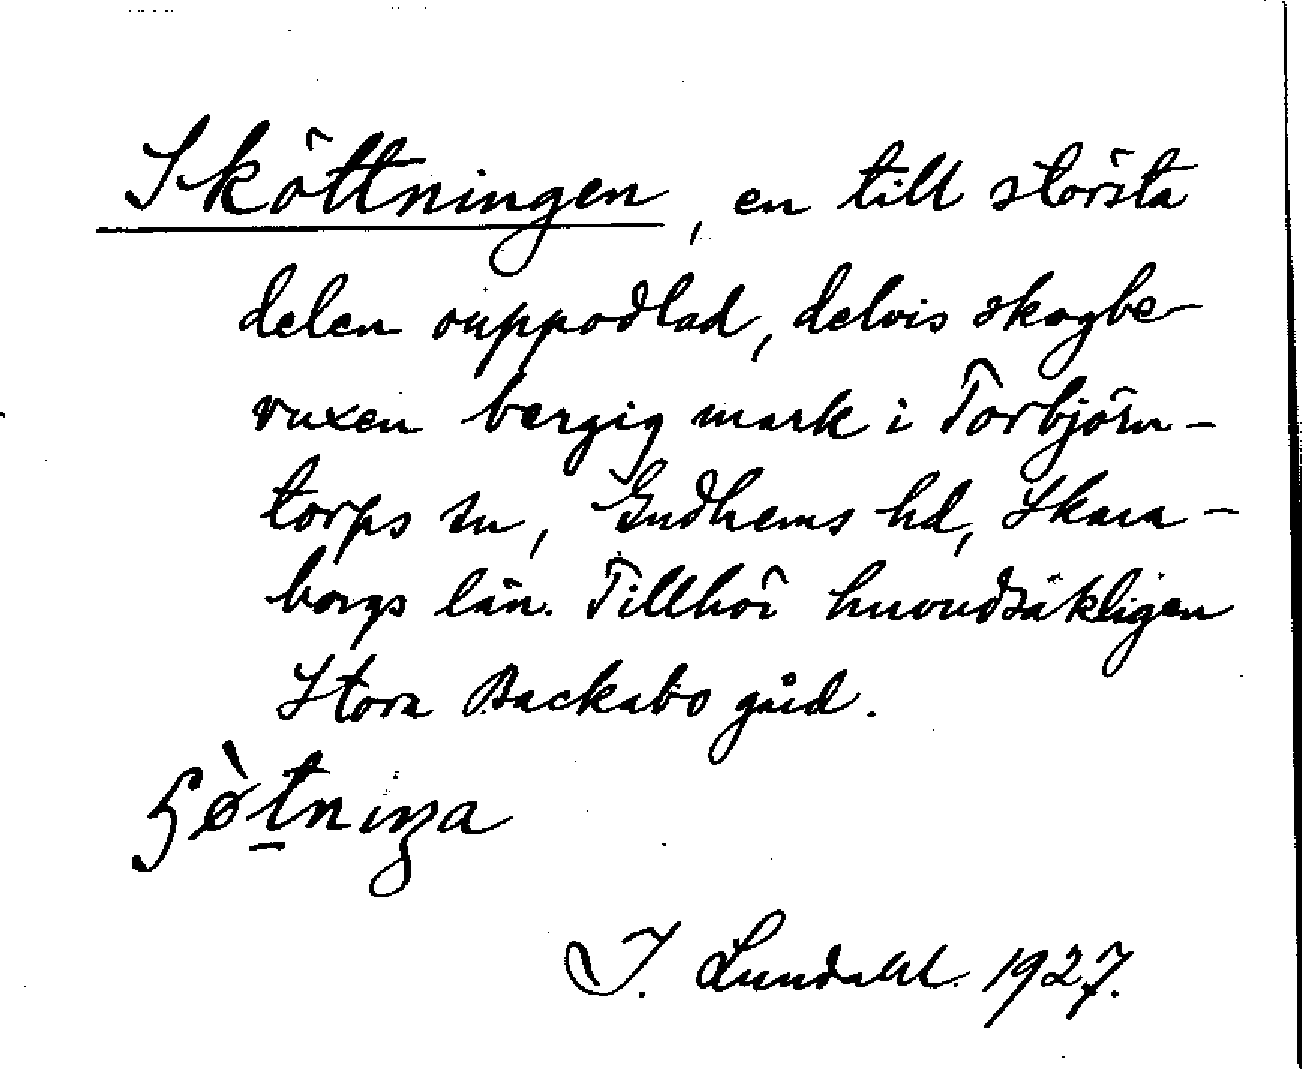 Sköttningen, en till största
delen ouppodlad, delvis skogbe-
vuxen bergig mark i Torbjörn-
torps sn, Gudhems hd, Skara-
borgs län. Tillhör huvudsäkligen
Stora Backabo gård.
I. Lundahl 1927.